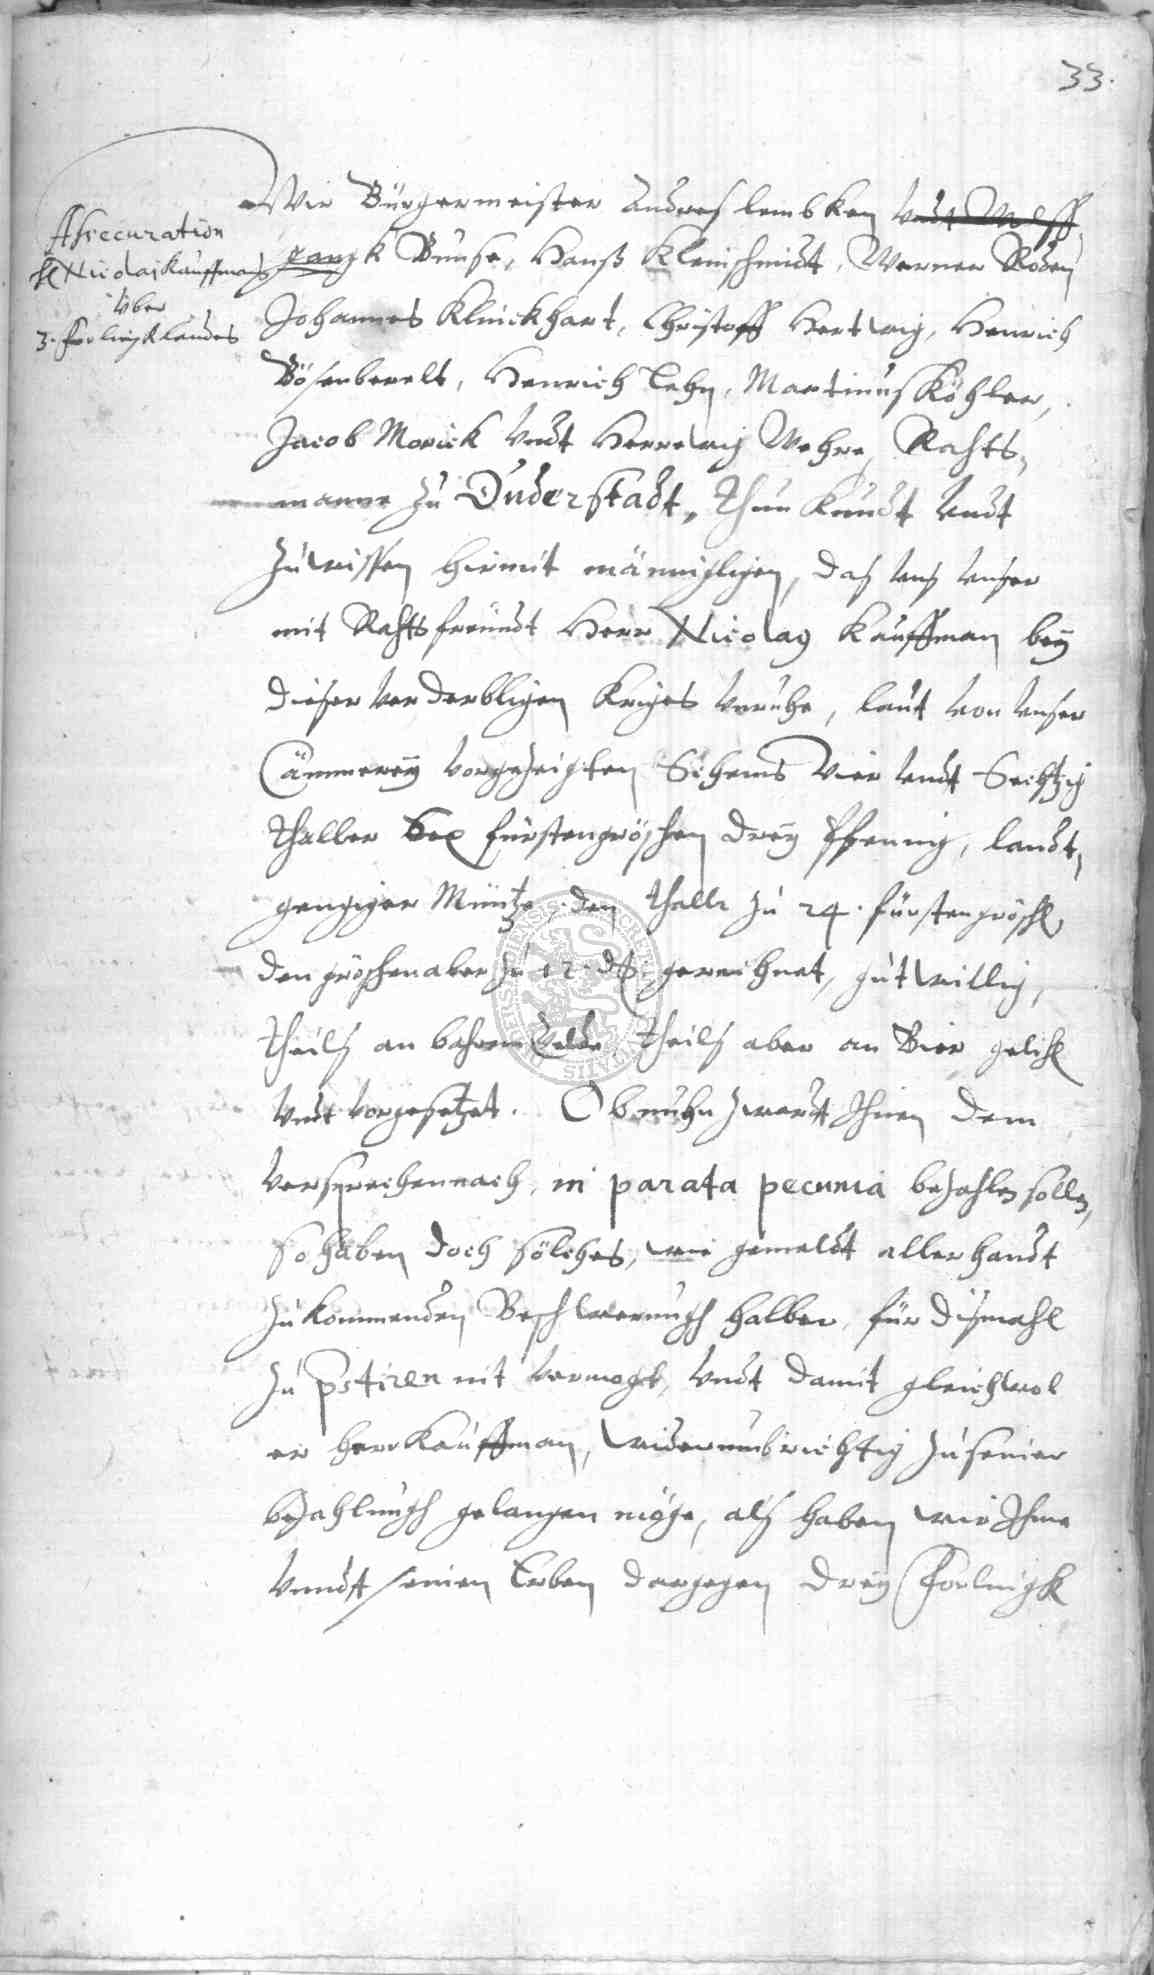 33.
Assecuration
H Nicolaj Kauffmans
vber
3. Forlingk landes
Wir Bürgermeister Andreß Lembken vndt Wolff
gangk Bunse, Hanß Kleinschmidt, Werner Roden
Johannes Klinckhart, Christoff Hertwig, Henrich
Bösenberelt, Henrich Lehn, Martinus Köhler,
Jacob Morick vndt Herrwig Wehre, Rahts-
manne zu Duderstadt, thun kundt vndt
zuwissen hiemit männigligen, das vns vnser
mit Rahtsfreundt Herr Nicolay Kauffman bey
dieser verderbligen Kriges vnruhe, laut von vnser
Cämmerey vorgezeigten Scheins vier vndt Sechtzig
thaller Sex fürstengröschen drey Pfennig, landt-
gengiger Müntze, den thalle zu 24. fürstengröschl
den gröschen aber zu 12. d. gerechnet, gutwillig,
theils an bahrem Gelde theils aber an Bier gelihe
vndt vorgesetzet. Ob nuhn zwardt Ihnen dem
versprechen nach, in parata pecunia bezahlen sollen,
so haben doch sölches, wie gemeldt allerhandt
zukommenden Beschwerungh halber, für dismahl
zu pstiren nit vermoget, vndt damit gleichwol
er Herr Kauffman, widerumb richtig zu seiner
bezahlungh gelangen möge, als haben wir Ihme
vnndt seinen Erben dargegen drey Forlingk